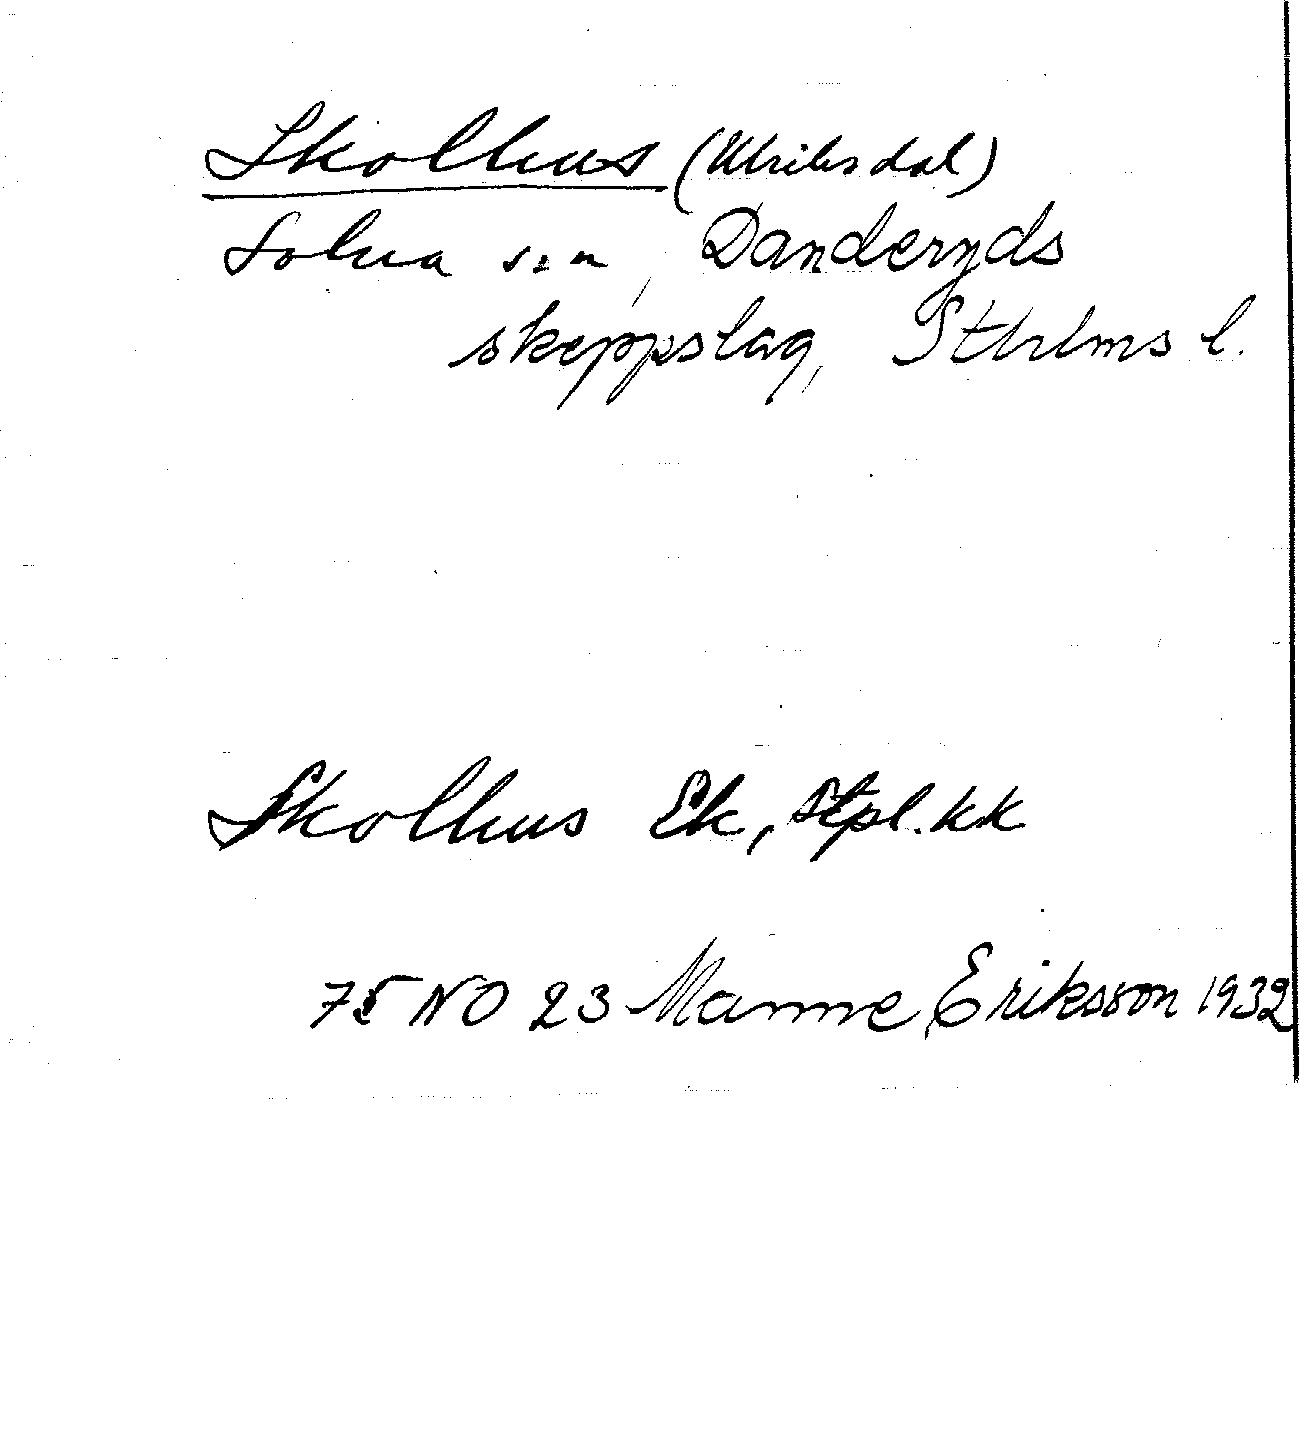 Skolhus (Ulriksdal)
Solna s:n, Danderyds
skeppslag, Sthlms l.
Skolhus Ek, Stpl. kk
75 NO 23 Manne Eriksson 1932